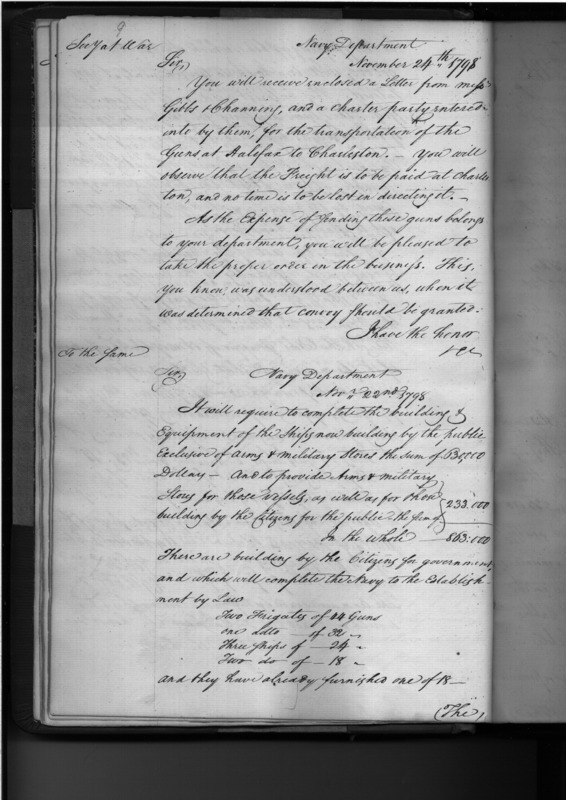 9
Secy at War
Navy Department
November 24th 1798
Sir,
You will receive enclosed a Letter from messrs
Gibbs & Channing, and a charter party entered
into by them, for the transportation of the
Guns at Halifax to Charleston. — You will
observe that the Freight is to be paid at Charles
ton, and no time is to be lost in directing it. —
As the Expense of sending these guns belongs
to your department, you will be pleased to
take the proper order in the business. This,
you know, was understood between us, when it
was determined that convoy should be granted.
I have the honor
&c
To the Same
Sir,
Navy Department
Novr 22nd 1798
It will require to complete the building &
Equipment of the Ships now building by the public
Exclusive of Arms & military Stores the Sum of 635,000
Dollars — And to provide Arms & military
Stores for those Vessels, as well as for those
building by the Citizens for the public the Sum of 233.000
In the whole 863.000
There are building by the Citizens for government,
and which will complete the Navy to the Establish
ment by Law
Two Frigates of 44 Guns
one ditto — of 32 "
Three Ships of — 24 "
Two do of — 18 "
and they have already furnished one of 18 —
(The)